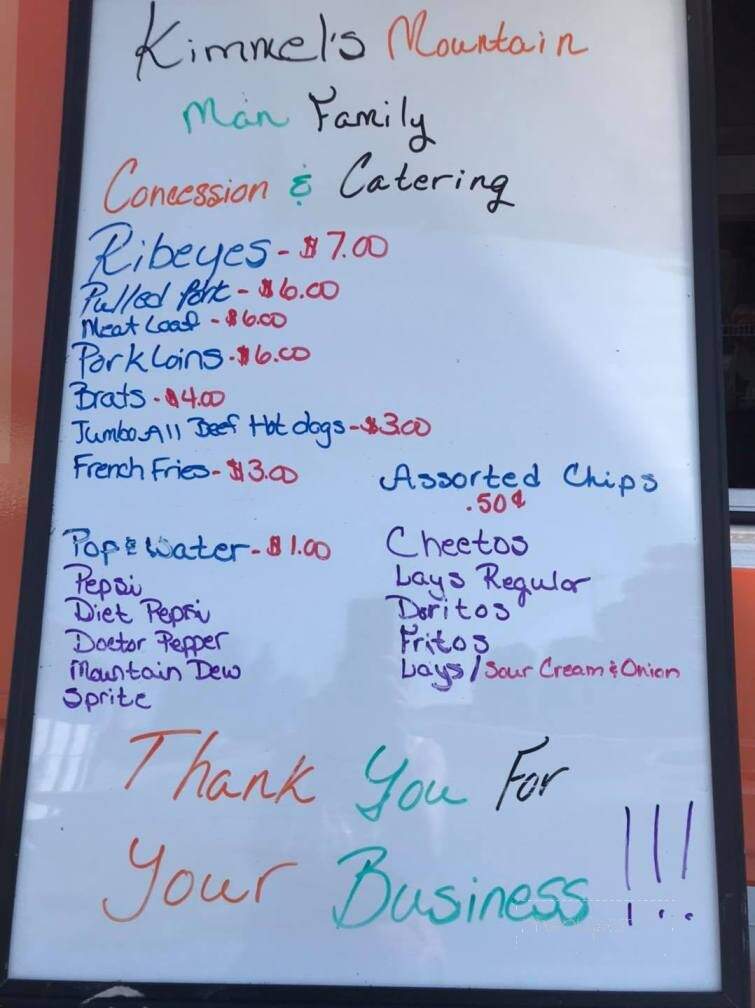 Kimmel's Mountain
Man Family
Concession & Catering
Ribeyes - $7.00
Pulled Pork - $6.00
Meat Loaf - $6.00
Pork Loins - $6.00
Brats - $4.00
Jumbo All Beef Hot dogs - $3.00
French Fries - $3.00
Pop & Water - $1.00
Pepsi
Diet Pepsi
Doctor Pepper
Mountain Dew
Sprite
Assorted Chips
.50¢
Cheetos
Lays Regular
Doritos
Fritos
Lays / Sour Cream & Onion
Thank You For
Your Business !!!